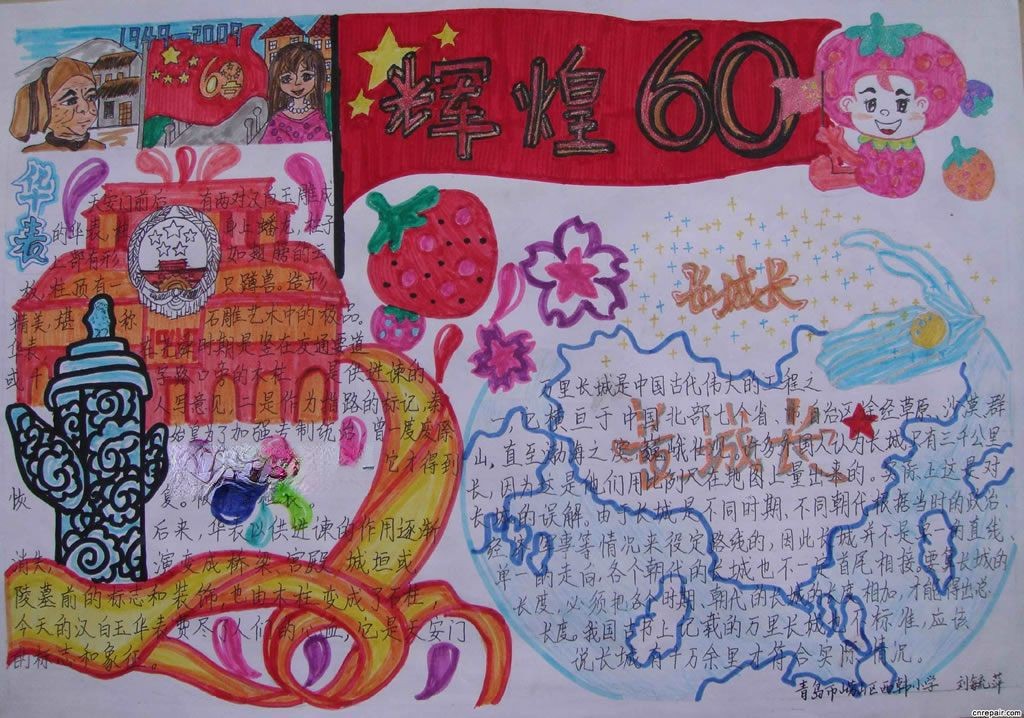 1949-2009
60
辉煌60
华表
天安门前后 有两对汉白玉雕成
的华表, 身上蟠龙,柱子
上部有 如翅膀的云
板,柱顶有一 只蹲兽。造形
精美,堪 称 石雕艺术中的极品。
华表 时期是竖在交通要道
或十 字路口旁的木柱 是供进谏的
人写意见,二是作为指路的标记,秦
始皇为了加强专制统治,曾一度废除
它才得到
恢 复。
后来,华表以供进谏的作用逐渐
消失, 演变成桥梁、宫殿、城垣或
陵墓前的标志和装饰,也由木柱变成了石柱,
今天的汉白玉华表费尽了人们的心血,它是天安门
的标志和象征。
1949
长城长
古城长
万里长城是中国古代伟大的工程之
一,它横亘于中国北部七个省、市、自治区,途经草原、沙漠、群
山,直至渤海之 许多外国人认为长城只有三千公里
长,因为这是他们用比例尺在地图上量出来的。实际上这是对
长城的误解。由于长城是不同时期、不同朝代根据当时的政治、
经济、军事等情况来设定路线的,因此长城并不是单一的直线、
单一的走向,各个朝代的长城也不一定首尾相接,要算长城的
长度,必须把各时期、朝代的长城的长度相加,才能得出总
长度。我国古书上记载的万里长城 标准,应该
说长城有十万余里才符合实际情况。
青岛市崂山区西韩小学 刘毓萍
cnrepair.com